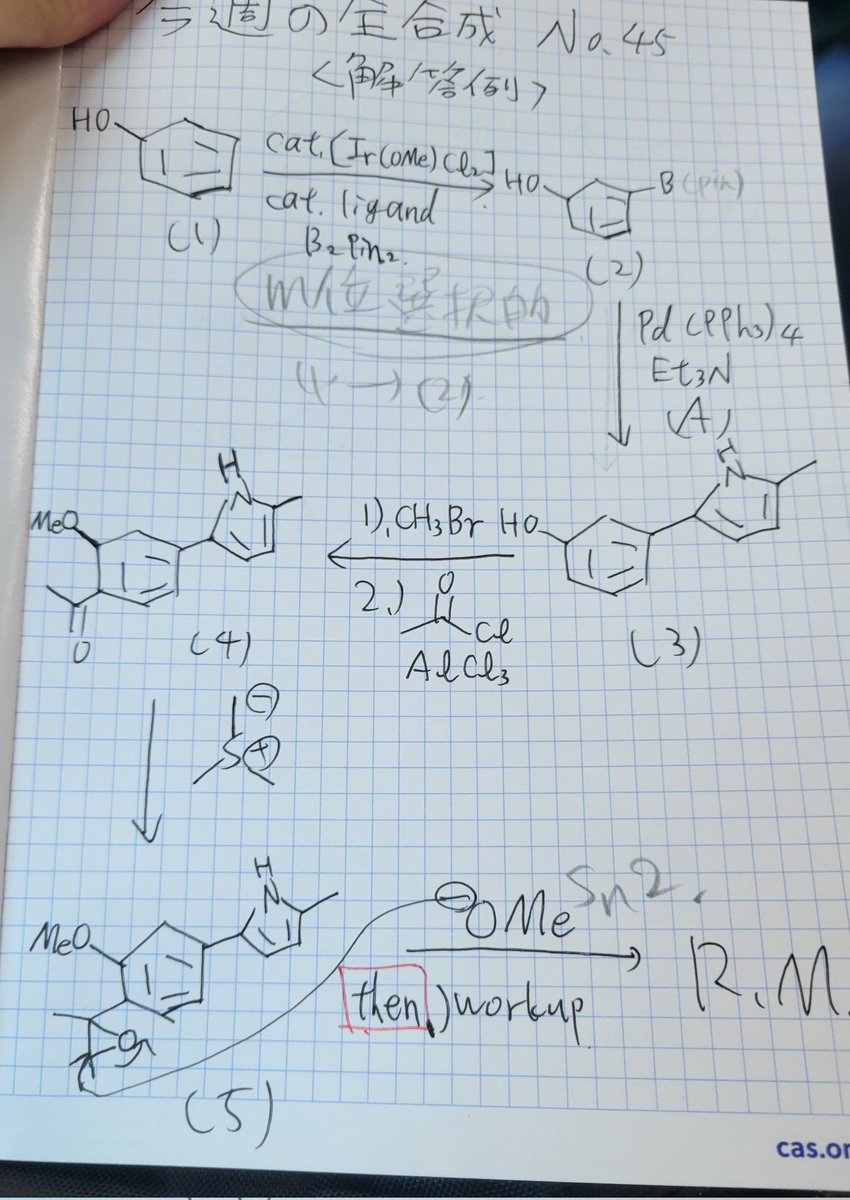 今週の全合成 No.45
<解答例>
HO
cat. [Ir(OMe)Cl₂]
cat. ligand
B₂Pin₂.
(1)
HO
B(pin)
(2)
m位選択的
(1) → (2)
Pd(PPh₃)₄
Et₃N
(A)
H
N
HO
(3)
1). CH₃Br
2.)
O
Cl
AlCl₃
H
N
MeO
O
(4)
⊖
S⊕
H
N
MeO
O
(5)
⊖OMe
SN2.
then.) workup
R.M.
cas.or